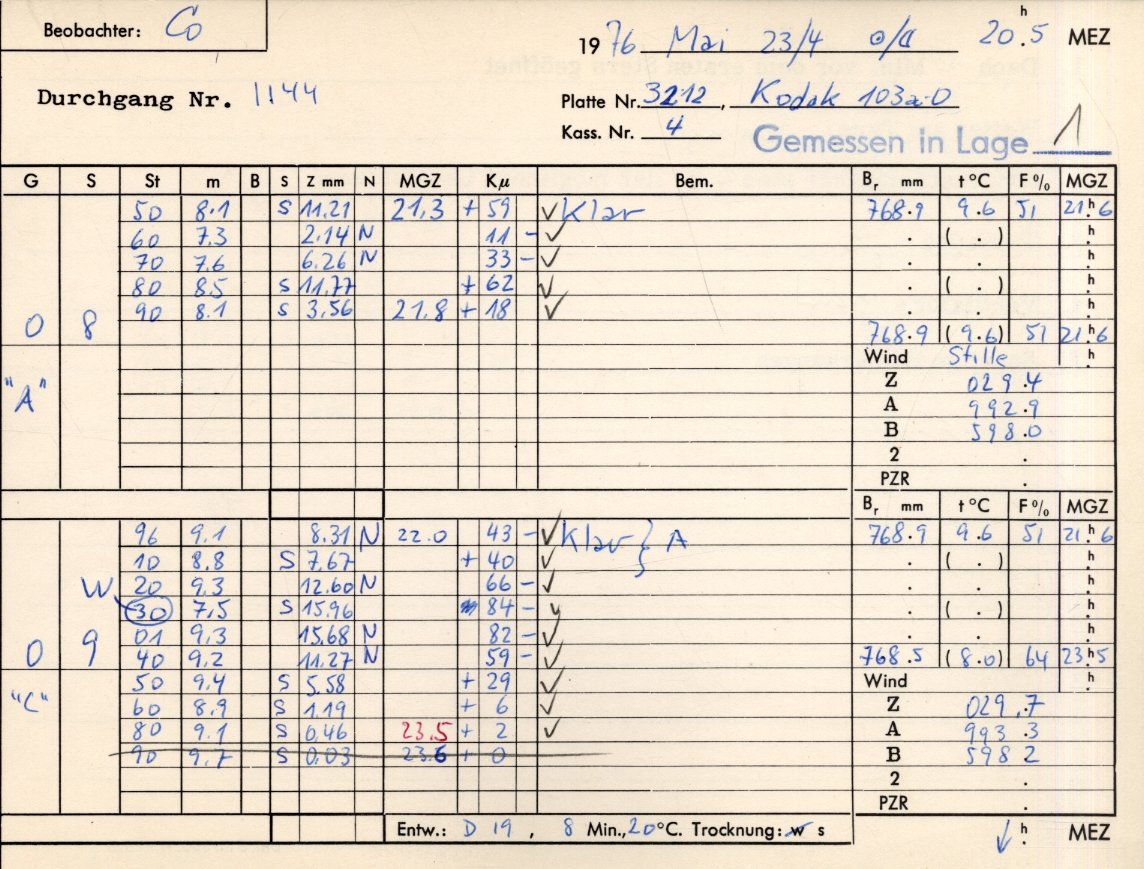 Beobachter: Co
1976 Mai 23/4 ☉/☾ 20.ʰ5 MEZ
Durchgang Nr. 1144
Platte Nr. 3212, Kodak 103a-O
Kass. Nr. 4 Gemessen in Lage 1
G S St m B S Z mm N MGZ Kμ Bem. Br mm t °C F% MGZ
50 8.1 S 11.21 21,3 + 59 ✓ Klar 768.9 9.6 51 21.ʰ6
60 7.3 2.14 N 11 - ✓ . ( . ) ʰ.
70 7.6 6.26 N 33 - ✓ . . ʰ.
80 8.5 S 11,77 + 62 ✓ . ( . ) ʰ.
90 8.1 S 3,56 21.8 + 18 ✓ . . ʰ.
0 8 768.9 (9.6) 51 21.ʰ6
Wind Stille ʰ.
"A" Z 029.4
A 992.9
B 598.0
2 .
PZR .
Br mm t °C F% MGZ
96 9.1 8.31 N 22.0 43 - ✓ Klar } A 768.9 9.6 51 21.ʰ6
10 8.8 S 7,67 + 40 ✓ . ( . ) ʰ.
W 20 9.3 12.60 N 66 - ✓ . . ʰ.
30 7,5 S 15.96 84 - ✓ . ( . ) ʰ.
01 9,3 15,68 N 82 - ✓ . . ʰ.
0 9 40 9,2 11,27 N 59 - ✓ 768.5 (8.0) 64 23.ʰ5
"C" 50 9,4 S 5.58 + 29 ✓ Wind ʰ.
60 8.9 S 1.19 + 6 ✓ Z 029.7
80 9.1 S 0,46 23.5 + 2 ✓ A 993.3
90 9.7 S 0,03 23.6 + 0 B 598 2
2 .
PZR .
Entw.: D 19, 8 Min., 20°C. Trocknung: w s ↓ ʰ. MEZ